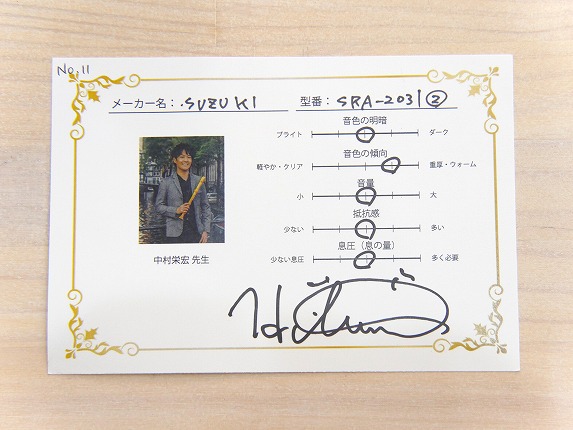 No.11
メーカー名：SUZUKI 型番：SRA-2031②
音色の明暗
ブライト ダーク
音色の傾向
軽やか・クリア 重厚・ウォーム
音量
小 大
抵抗感
少ない 多い
息圧（息の量）
少ない息圧 多く必要
中村栄宏 先生